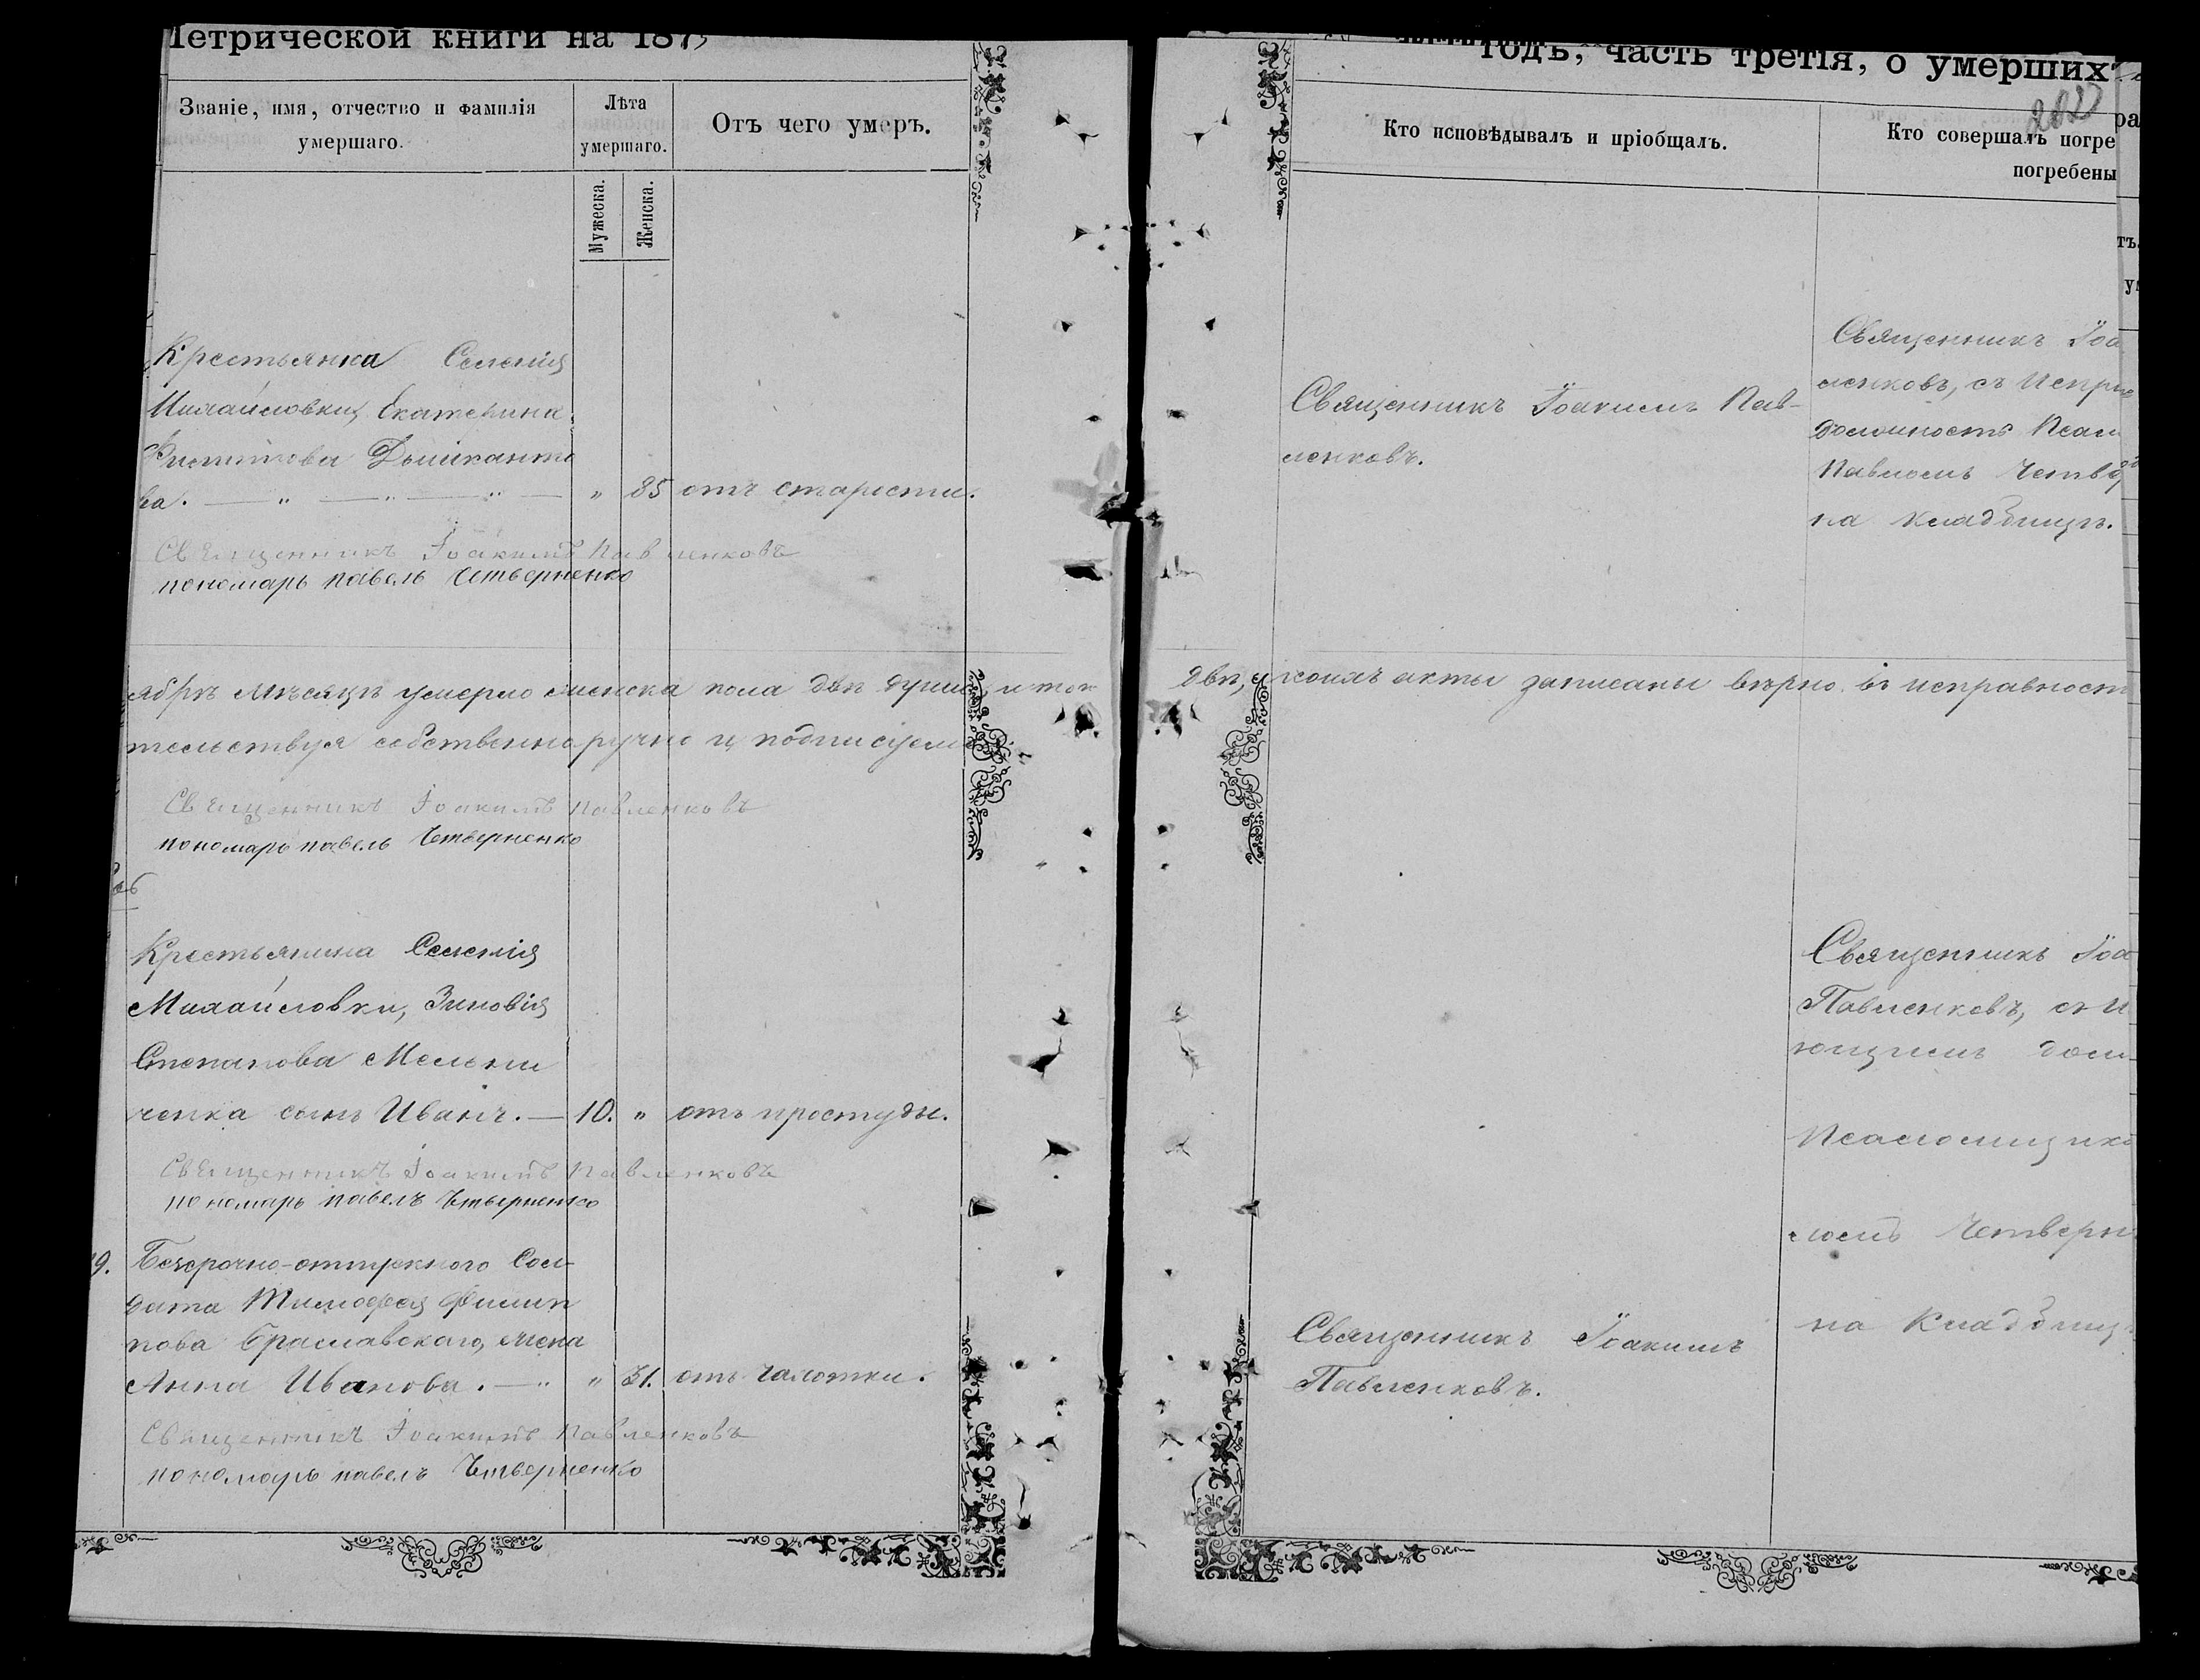 Метрической книги на 187
Званіе, имя, отчество и фамилія
умершаго.
Лѣта
умершаго.
Мужеска.
Женска.
Отъ чего умеръ.
Крестьянка Селенія
Михайловки, Екатерина
ва. — „ — „ — „ — „ 85 отъ старости.
Священникъ Іоакимъ Павленковъ
пономарь павелъ Четверненко
ябрѣ мѣсяцѣ умерло женска пола двѣ души, итог
тельствуя собственноручно и подписуем
Священникъ Іоакимъ Павленковъ
пономарь павелъ Четверненко
Крестьянина Селенія
Михайловки, Зиновія
Степанова Мельни
ченка сынъ Иванъ. — 10. „ отъ простуды.
Священникъ Іоакимъ Павленковъ
пономарь павелъ Четверненко
9. Безсрочно-отпускного Сол-
дата Тимофея Филип
пова Браславскаго, жена
Анна Иванова. — „ „ 31. отъ чахотки.
Священникъ Іоакимъ Павленковъ
пономарь павелъ Четверненко
годъ, часть третія, о умерших
Кто исповѣдывалъ и пріобщалъ.
Кто совершалъ погре
погребены
Священникъ Іоакимъ Пав-
ленковъ.
Священникъ Іоа
ленковъ, съ Испра
должность Псал
Павломъ Четве
на кладбищѣ.
двѣ, у коихъ акты записаны вѣрно въ исправност
Священникъ Іоа
Павленковъ, съ И
ющимъ дол
Псаломщико
ломъ Четверн
на кладбищ
Священникъ Іоакимъ
Павленковъ.